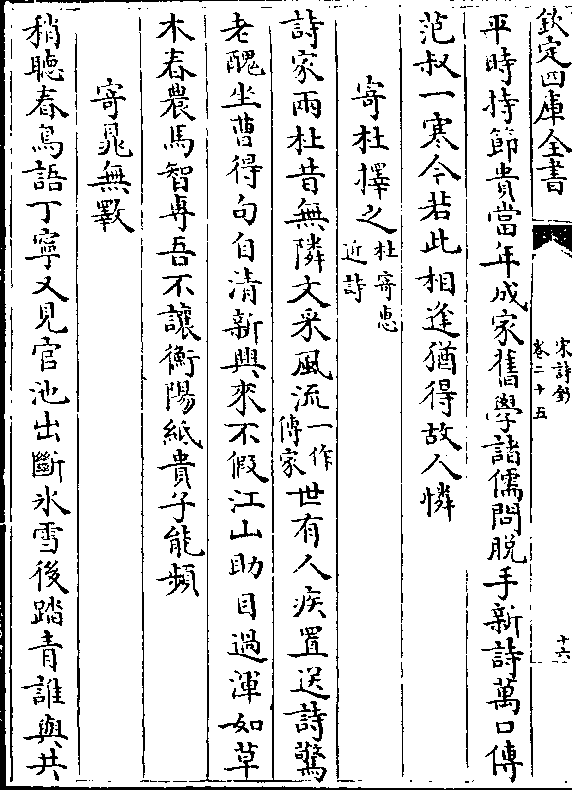 欽定四庫全書
宋詩鈔
卷二十五
十六
平時持節貴當年成家舊學諸儒問脱手新詩萬口傳
范叔一寒今若此相逢猶得故人憐
寄杜擇之杜寄惠近詩
詩家兩杜昔無隣文采風流一作傳家世有人疾置送詩驚
老醜坐曹得句自清新興來不假江山助目過渾如草
木春農馬智專吾不讓衡陽紙貴子能頻
寄晁無斁
稍聽春鳥語丁寧又見官池出斷氷雪後踏青誰與共